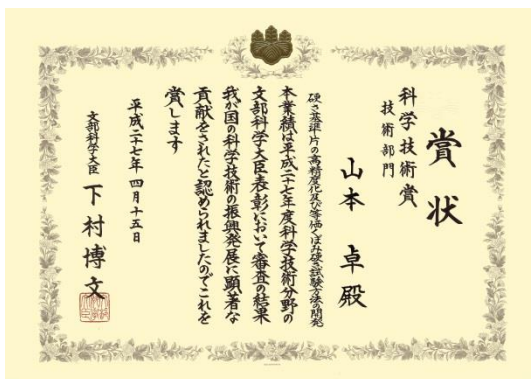 賞状
科学技術賞
技術部門
山本卓殿
硬さ基準片の高精度化及び等価くぼみ硬さ試験方法の開発
本業績は平成二十七年度科学技術分野の
文部科学大臣表彰において審査の結果
我が国の科学技術の振興発展に顕著な
貢献をされたと認められましたのでこれを
賞します
平成二十七年四月十五日
文部科学大臣 下村博文